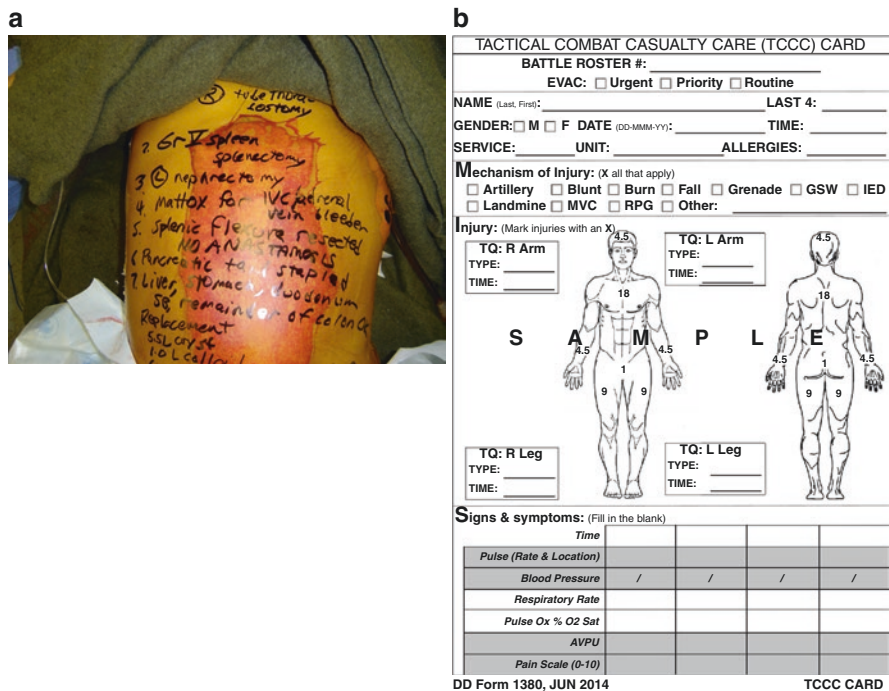 a
R tube thorac
ostomy
2. Gr V spleen
splenectomy
3 L nephrectomy
4. Mattox for IVC/adrenal
vein bleeder
5. Splenic Flexure resected
NO ANASTAMOSIS
6 Pancreatic tail stapled
7. Liver, stomach, duodenum
SB, remainder of colon
Replacement
b
TACTICAL COMBAT CASUALTY CARE (TCCC) CARD
BATTLE ROSTER #:
EVAC: Urgent Priority Routine
NAME (Last, First): LAST 4:
GENDER: M F DATE (DD-MMM-YY): TIME:
SERVICE: UNIT: ALLERGIES:
Mechanism of Injury: (X all that apply)
Artillery Blunt Burn Fall Grenade GSW IED
Landmine MVC RPG Other:
Injury: (Mark injuries with an X)
TQ: R Arm
TYPE:
TIME:
4.5
TQ: L Arm
TYPE:
TIME:
4.5
18 18
S A M P L E
4.5 4.5 4.5 4.5
1 1
9 9 9 9
TQ: R Leg
TYPE:
TIME:
TQ: L Leg
TYPE:
TIME:
Signs & symptoms: (Fill in the blank)
Time
Pulse (Rate & Location)
Blood Pressure / / / /
Respiratory Rate
Pulse Ox % O2 Sat
AVPU
Pain Scale (0-10)
DD Form 1380, JUN 2014 TCCC CARD